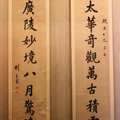 太華奇觀萬古積雪
廣陵妙境八月驚